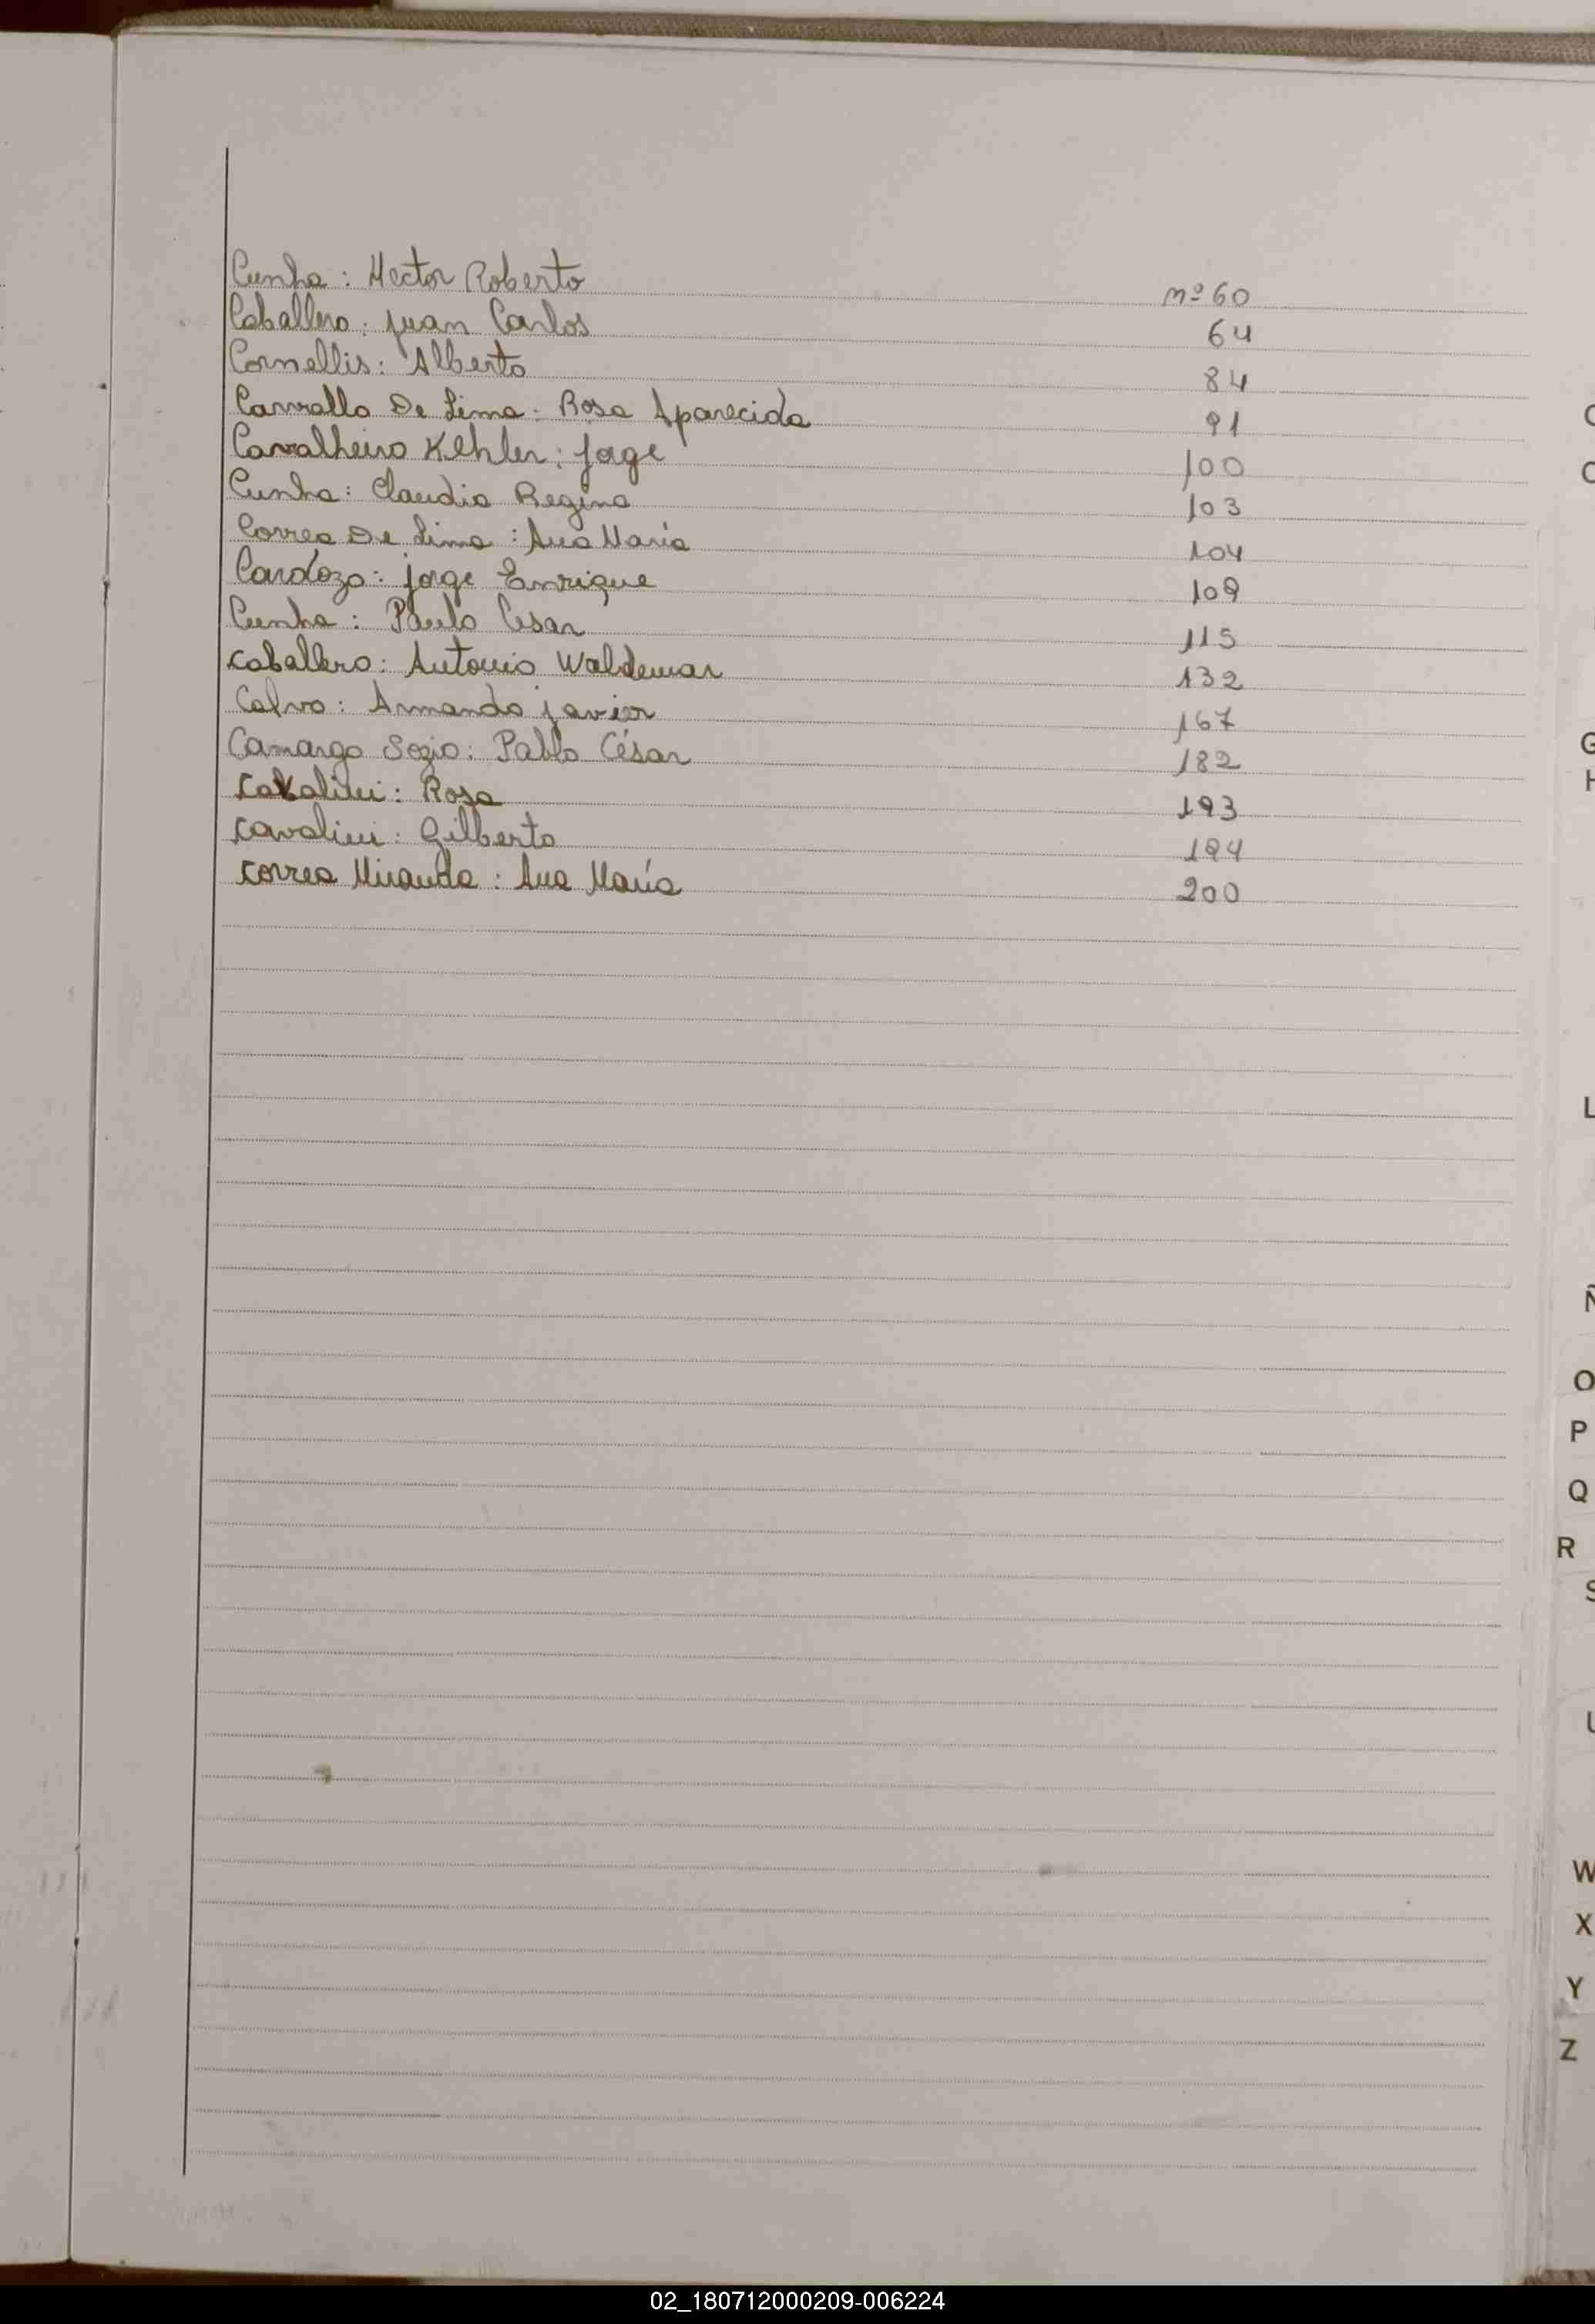 Cunha: Hector Roberto nº 60
Caballero: Juan Carlos 64
Cornellis: Alberto 84
Carvallo De Lima: Rosa Aparecida 91
Cavalheiro Kehler: Jorge 100
Cunha: Claudia Regina 103
Correa De Lima: Ana María 104
Cardozo: Jorge Enrique 109
Cunha: Paulo Cesar 115
Caballero: Antonio Waldemar 132
Calvo: Armando javier 167
Camargo Sozio: Pablo César 182
Cavalini: Rosa 193
Cavalini: Gilberto 194
Correa Miranda: Ana María 200
C
C
G
H
L
Ñ
O
P
Q
R
S
U
W
X
Y
Z
02_180712000209-006224